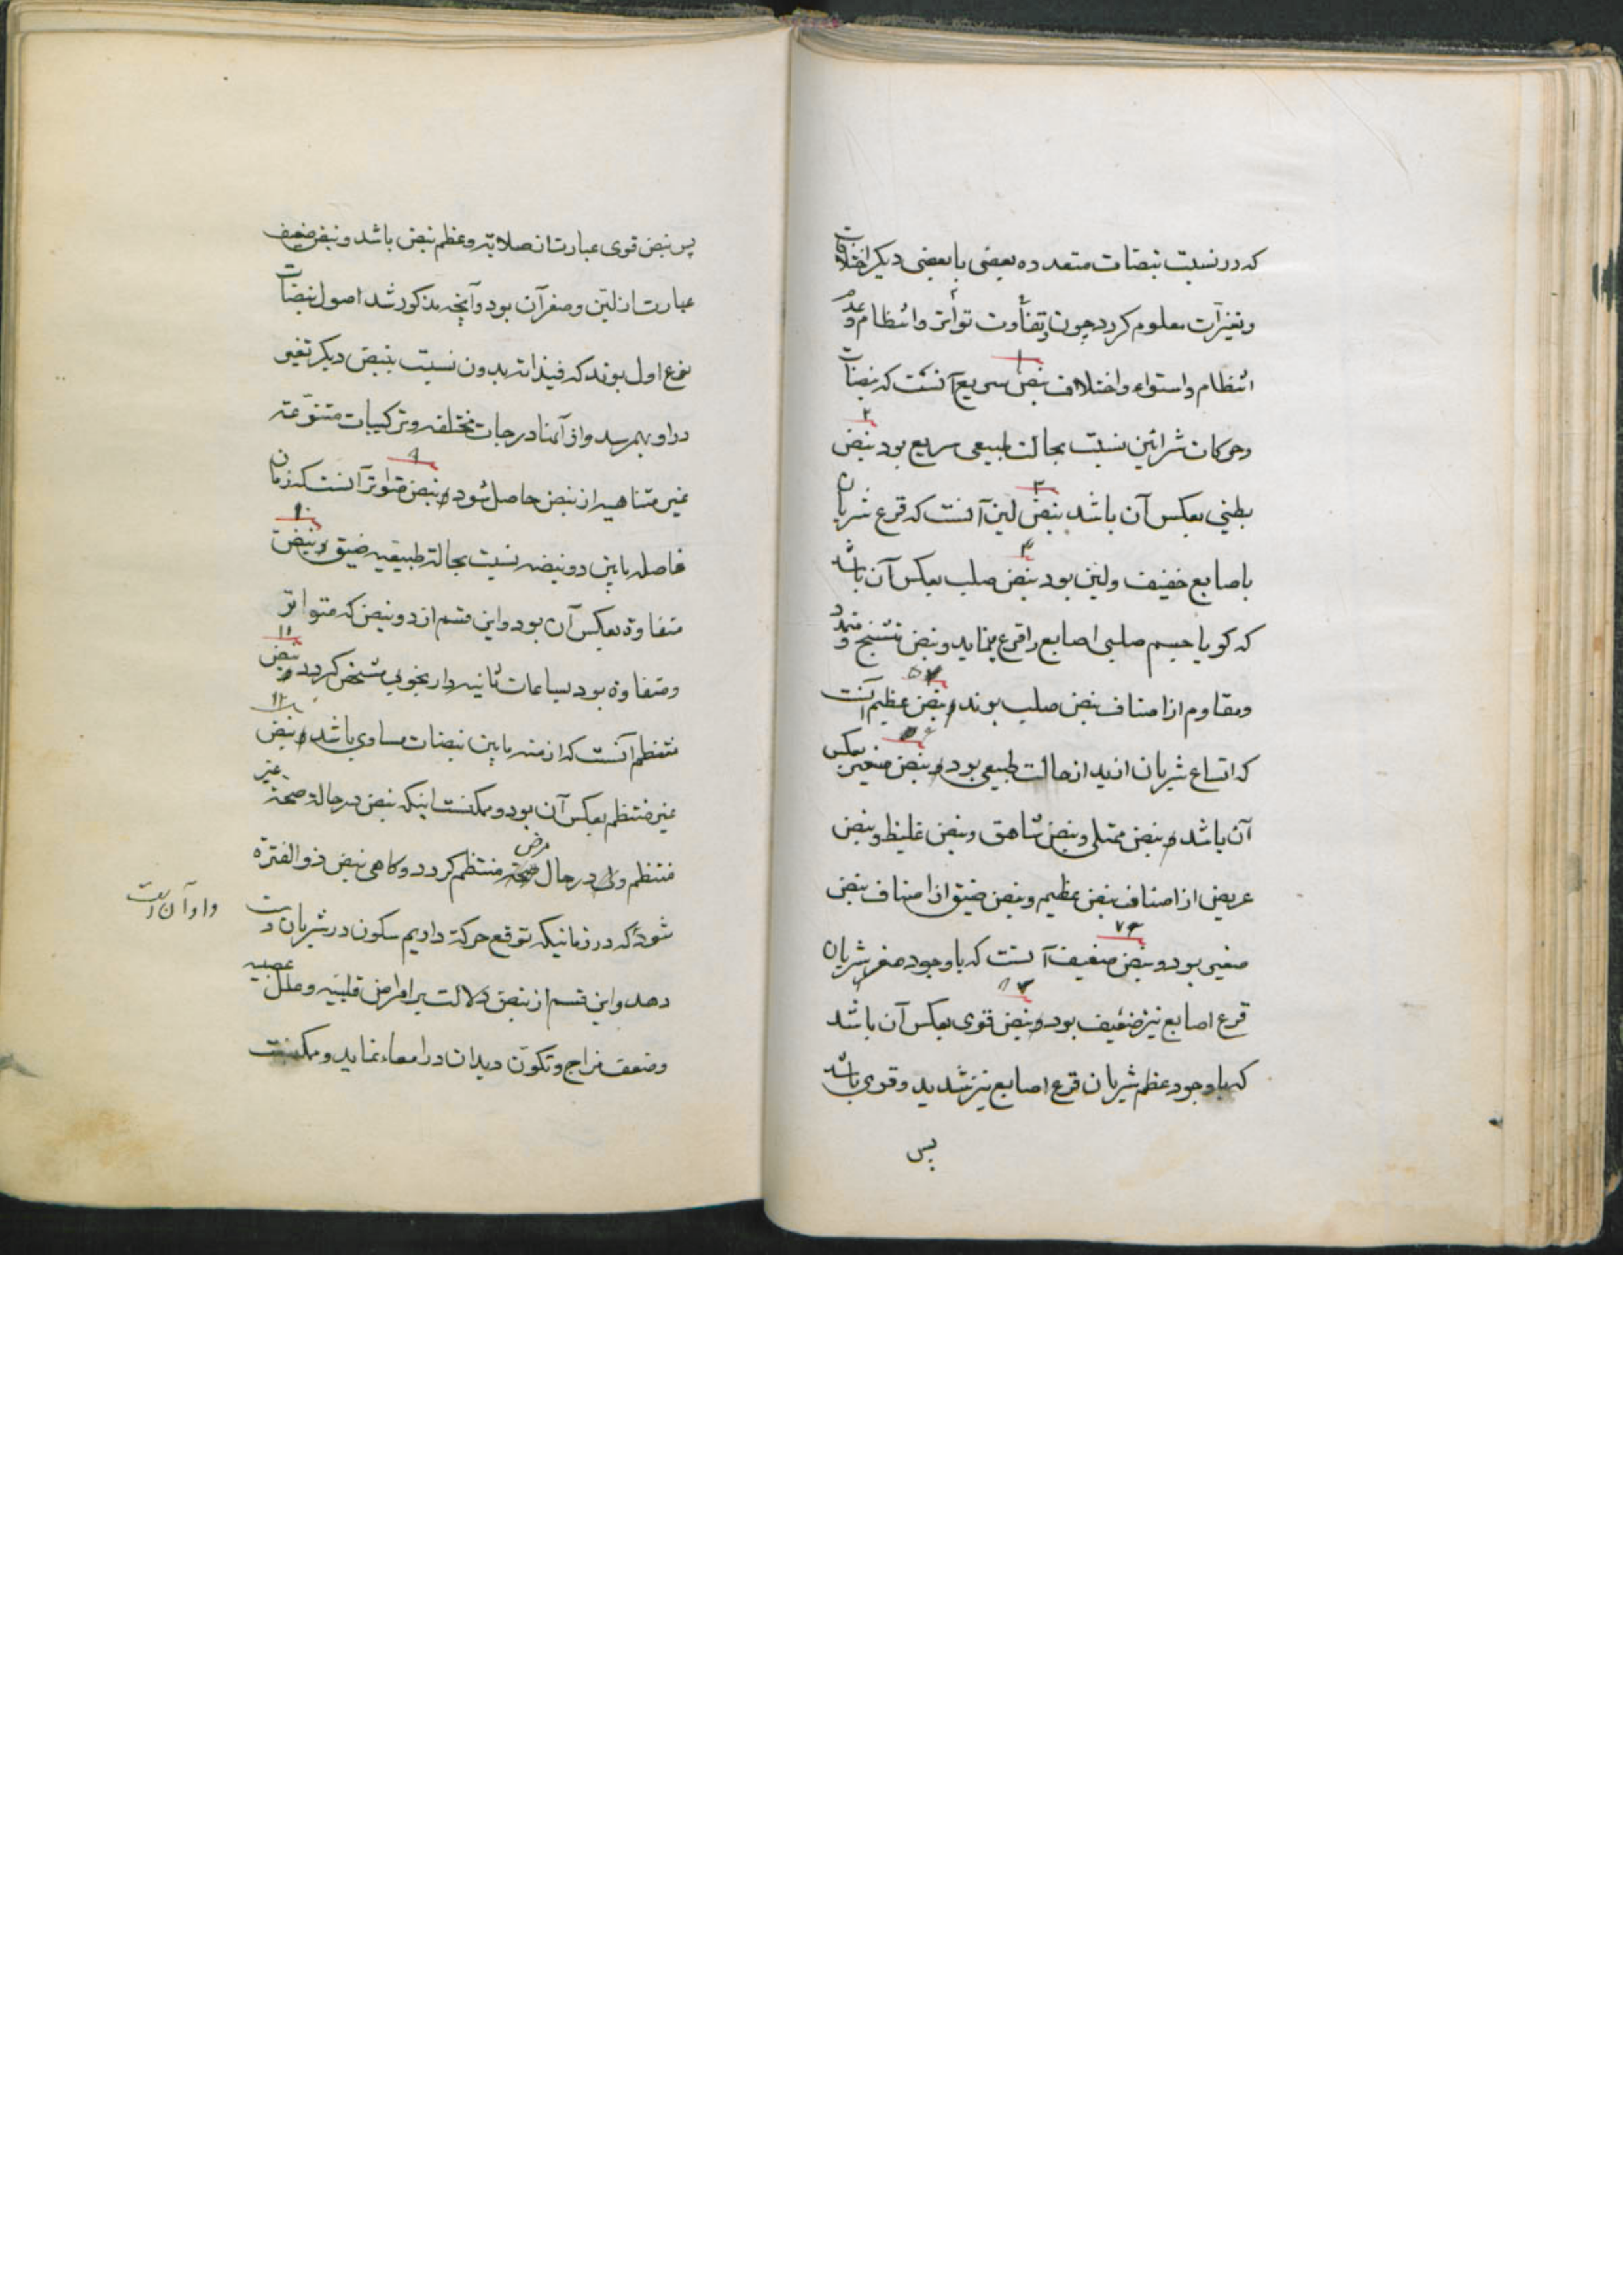 که در نسبت نبضات متعدده بعضی با بعضی دیگر اختلافات
و تغیرات معلوم کردد چون تفاوت تواتر و انتظام و عدم
انتظام و استواء و اختلاف نبض سریع آنست که نبضات
۱
و حرکات شرائین نسبت بحالت طبیعی سریع بود نبض
۲
بطئی بعکس آن باشد نبض لین آنست که قرع شریان
۳
باصابع خفیف و لین بود نبض صلب بعکس آن باشد
۴
که کویا جسم صلبی اصابع را قرع مینماید و نبض متشنج و متمدد
و مقاوم از اصناف نبض صلب بوند و نبض عظیم آنست
۵
که اتساع شریان ازید از حالت طبیعی بود و نبض صغیر بعکس
۶
آن باشد و نبض ممتلی و نبض شاهق و نبض غلیظ و نبض
عریض از اصناف نبض عظیم و نبض ضیق از اصناف نبض
صغیر بود و نبض ضعیف آنست که با وجود صغر شریان
۷
قرع اصابع نیز ضعیف بود و نبض قوی بعکس آن باشد
۸
که با وجود عظم شریان قرع اصابع نیز شدید و قوی باشد
پس
پس نبض قوی عبارت از صلابة و عظم نبض باشد و نبض ضعیف
عبارت از لین و صغر آن بود و آنچه مذکور شد اصول نبضات
نوع اول بوند که فیذاته بدون نسبت بنبض دیکر تغیر
در او بهم رسد و از آنها درجات مختلفه و ترکیبات متنوّعه
غیر متناهیه از نبض حاصل شود و نبض متواتر آنست که زمان
۹
فاصله مابین دو نبضه نسبت بحالة طبیعیه ضیق و نبض
۱۰
متفاوة بعکس آن بود و این قسم از دو نبض که متواتر
و متفاوة بود بساعات ثانیه دار بخوبی مشخص کردد و نبض
۱۱
منتظم آنست که ازمنه مابین نبضات مساوی باشد و نبض
۱۲
غیر منتظم بعکس آن بود و ممکنست اینکه نبض در حالة صحة غیر
منتظم ولی در حال صحة مرض منتظم کردد و کاهی نبض ذو الفترة
شود که در زمانیکه توقع حرکة داریم سکون در شریان دست
دهد و این قسم از نبض دلالت بر امراض قلبیّه و علل عصبیه
و ضعف مزاج و تکوّن دیدان در امعاء نماید و ممکنست